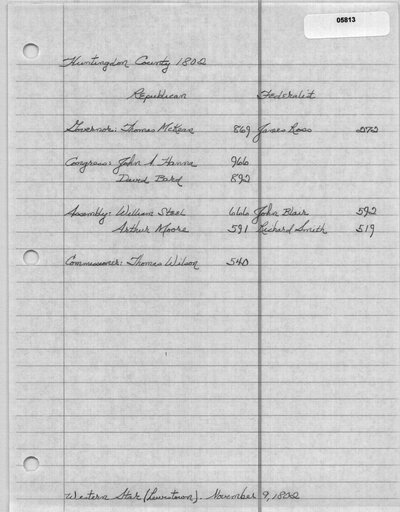 05813
Huntingdon County 1802
Republican Federalist
Governor: Thomas McKean 869 James Ross
Congress: John A. Hanna 966
David Bard 892
Assembly: William Steel 666 John Blair 592
Arthur Moore 591 Richard Smith 519
Commissioner: Thomas Wilson 540
Western Star (Lewistown). November 9, 1802